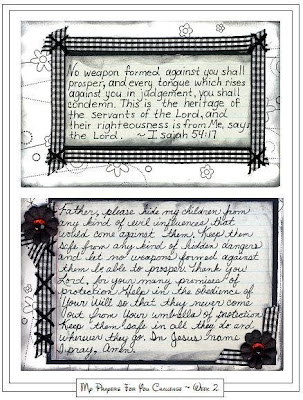 No weapon formed against you shall
prosper, and every tongue which rises
against you in judgement, you shall
condemn. This is the heritage of
the servants of the Lord, and
their righteousness is from Me, says
the Lord. ~ Isaiah 54:17
Father, please hide my children from
any kind of evil influences that
would come against them. Keep them
safe from any kind of hidden dangers
and let no weapons formed against
them be able to prosper. Thank you
Lord, for your many promises of
protection. Help in the obedience of
Your Will so that they never come
out from Your umbrella of protection.
Keep them safe in all they do and
wherever they go. In Jesus' name
I pray, Amen.
My Prayers For You Challenge ~ Week 2